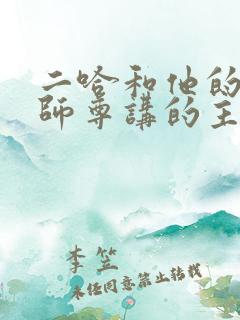 二哈和他的
師尊講的主
李笠
未经同意禁止转载